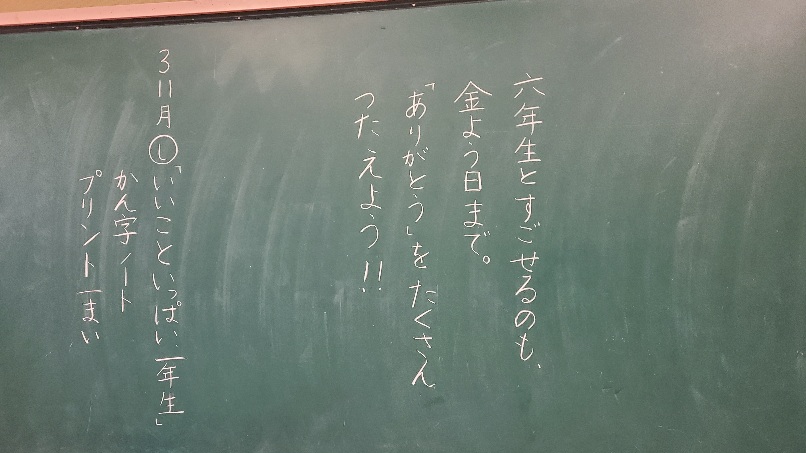 六年生とすごせるのも、
金よう日まで。
「ありがとう」をたくさん
つたえよう!!
3 11月 し 「いいこといっぱい、一年生」
かん字ノート
プリント一まい